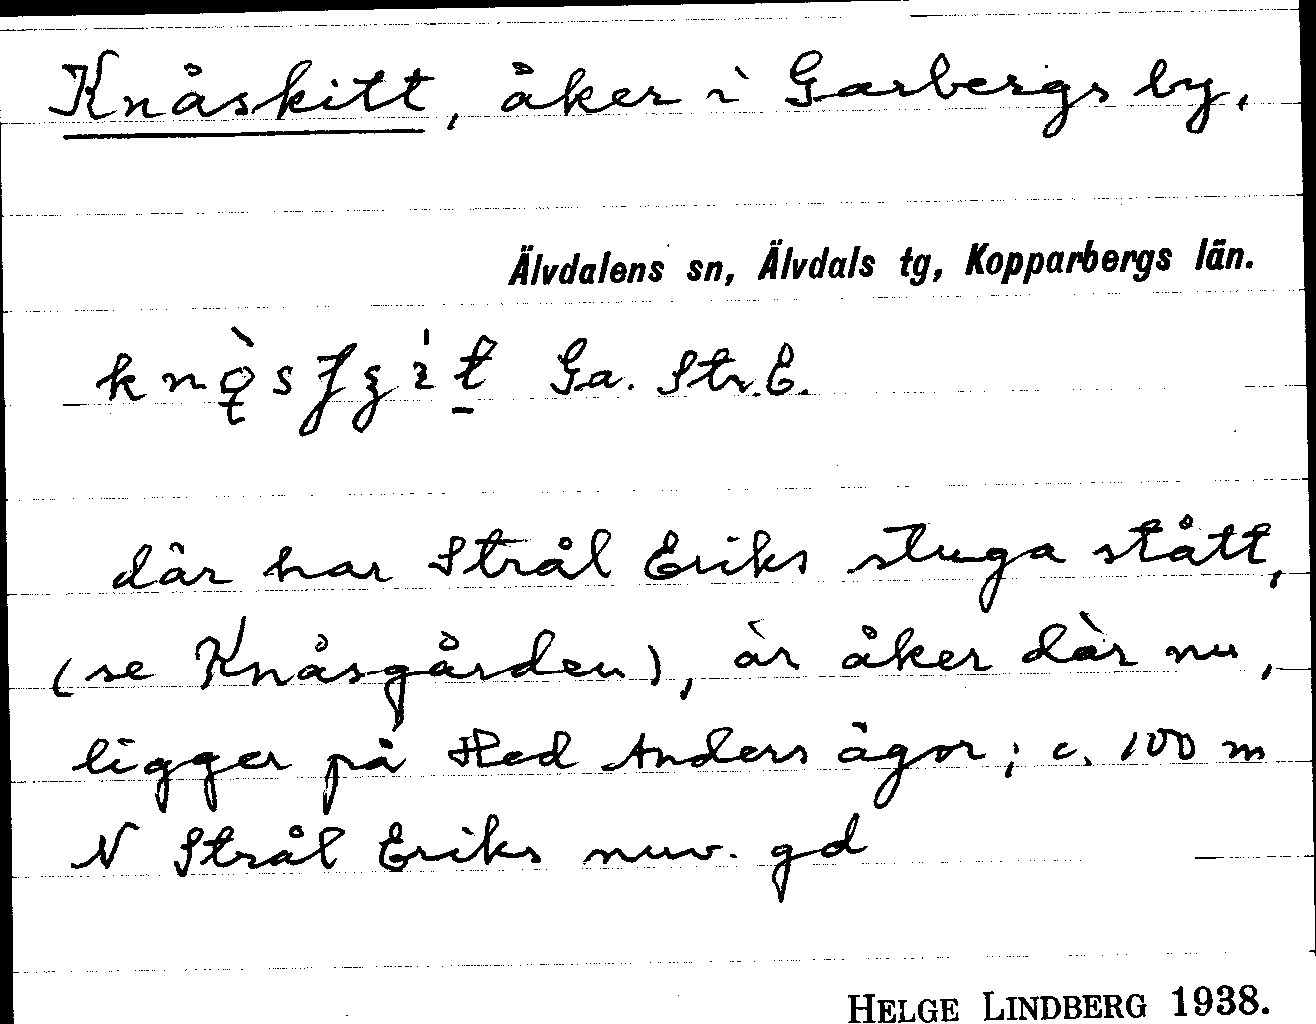 Knåskitt, åker i Garbergs by,
Älvdalens sn, Älvdals tg, Kopparbergs län.
Ga. Str. E.
där har Strål Eriks stuga stått,
(se Knåsgården), är åker där nu,
ligger på Hed Anders ägor; c. 100 m
N Strål Eriks nuv. gd
HELGE LINDBERG 1938.